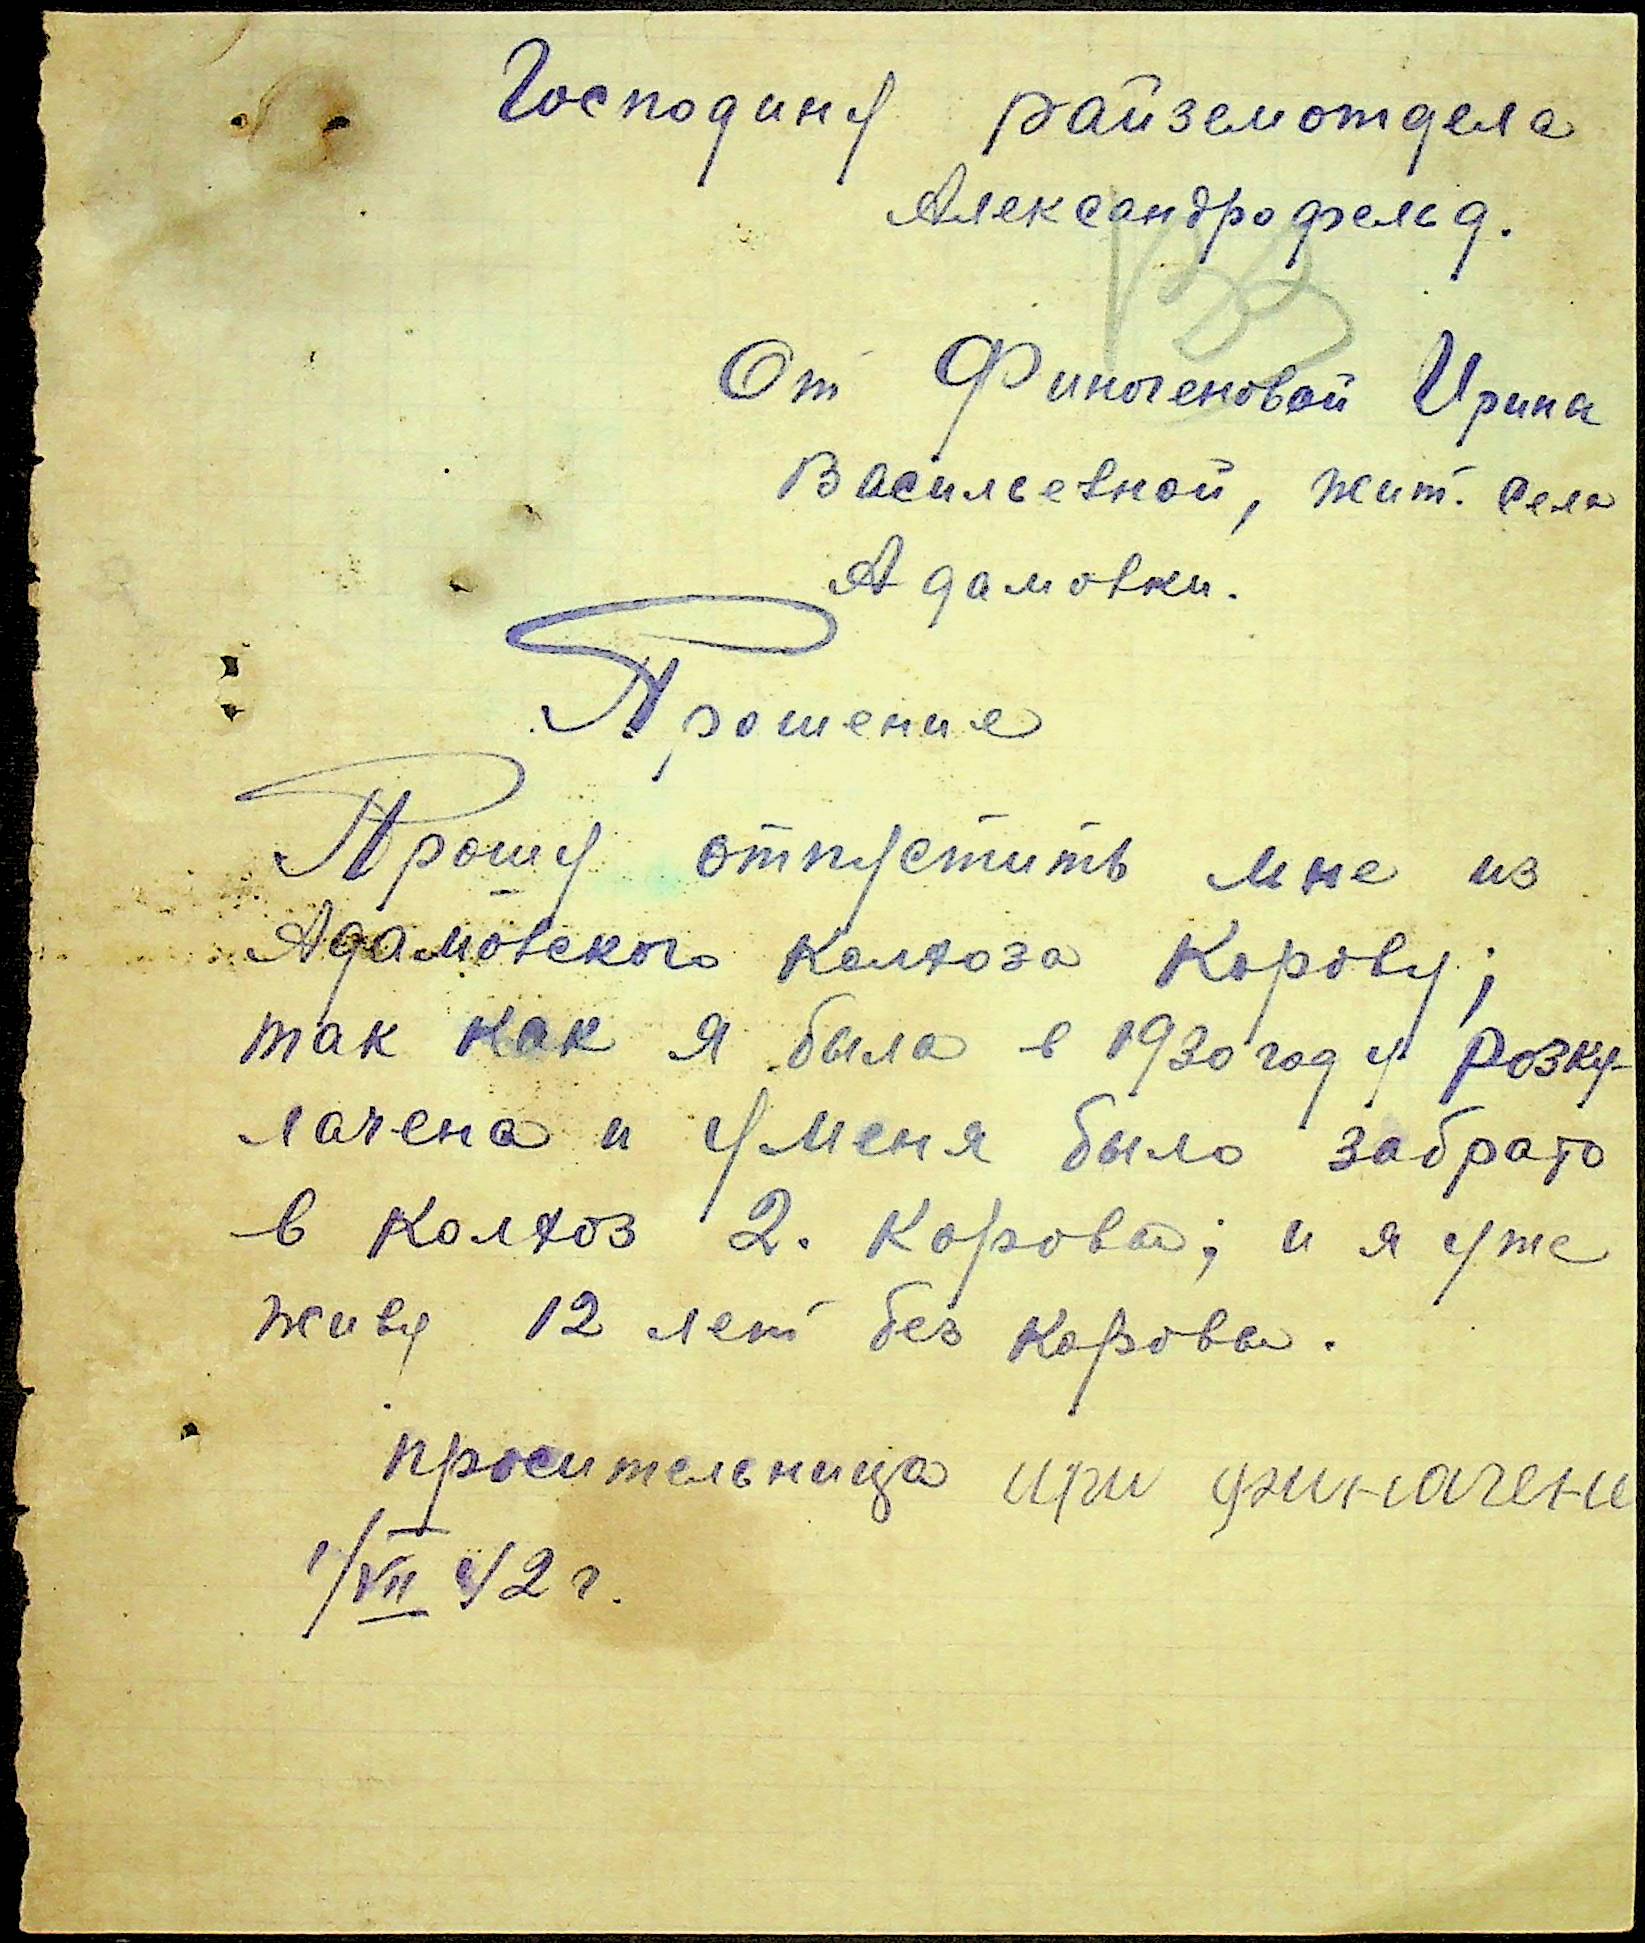 Господину райземотдела
Александрофельд.
От Финогеновой Ирина
Василсевной, жит. села
Адамовки.
Прошение
Прошу отпустить мне из
Адамовского колхоза корову;
так как я была в 1930 году розку-
лачена и у меня было забрато
в колхоз 2. коровы; и я уже
живу 12 лет без коровы.
просительница ири финачени
1/VII 42 г.